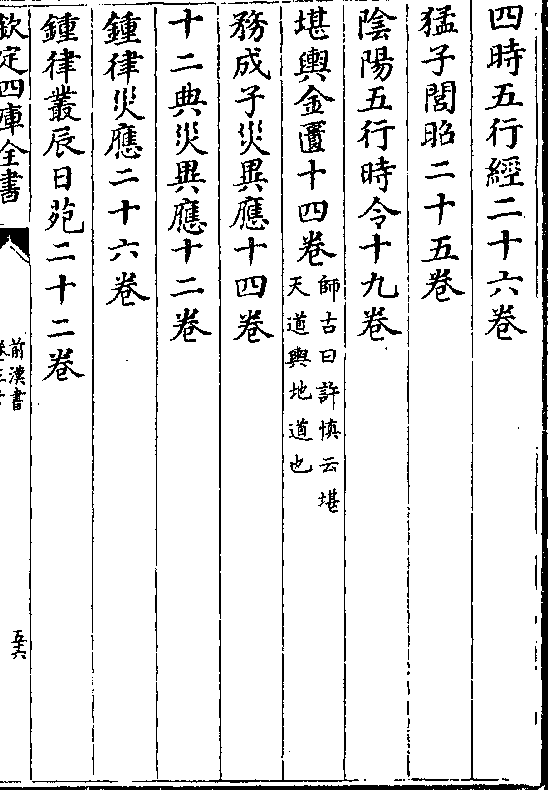 四時五行經二十六卷
猛子閭昭二十五卷
陰陽五行時令十九卷
堪輿金匱十四卷師古曰許慎云堪天道輿地道也
務成子災異應十四卷
十二典災異應十二卷
鍾律災應二十六卷
鍾律叢辰日苑二十二卷
欽定四庫全書
前漢書
五六